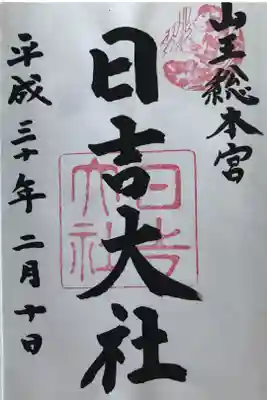 山王総本宮
日吉大社
平成三十年二月十日
日吉大社